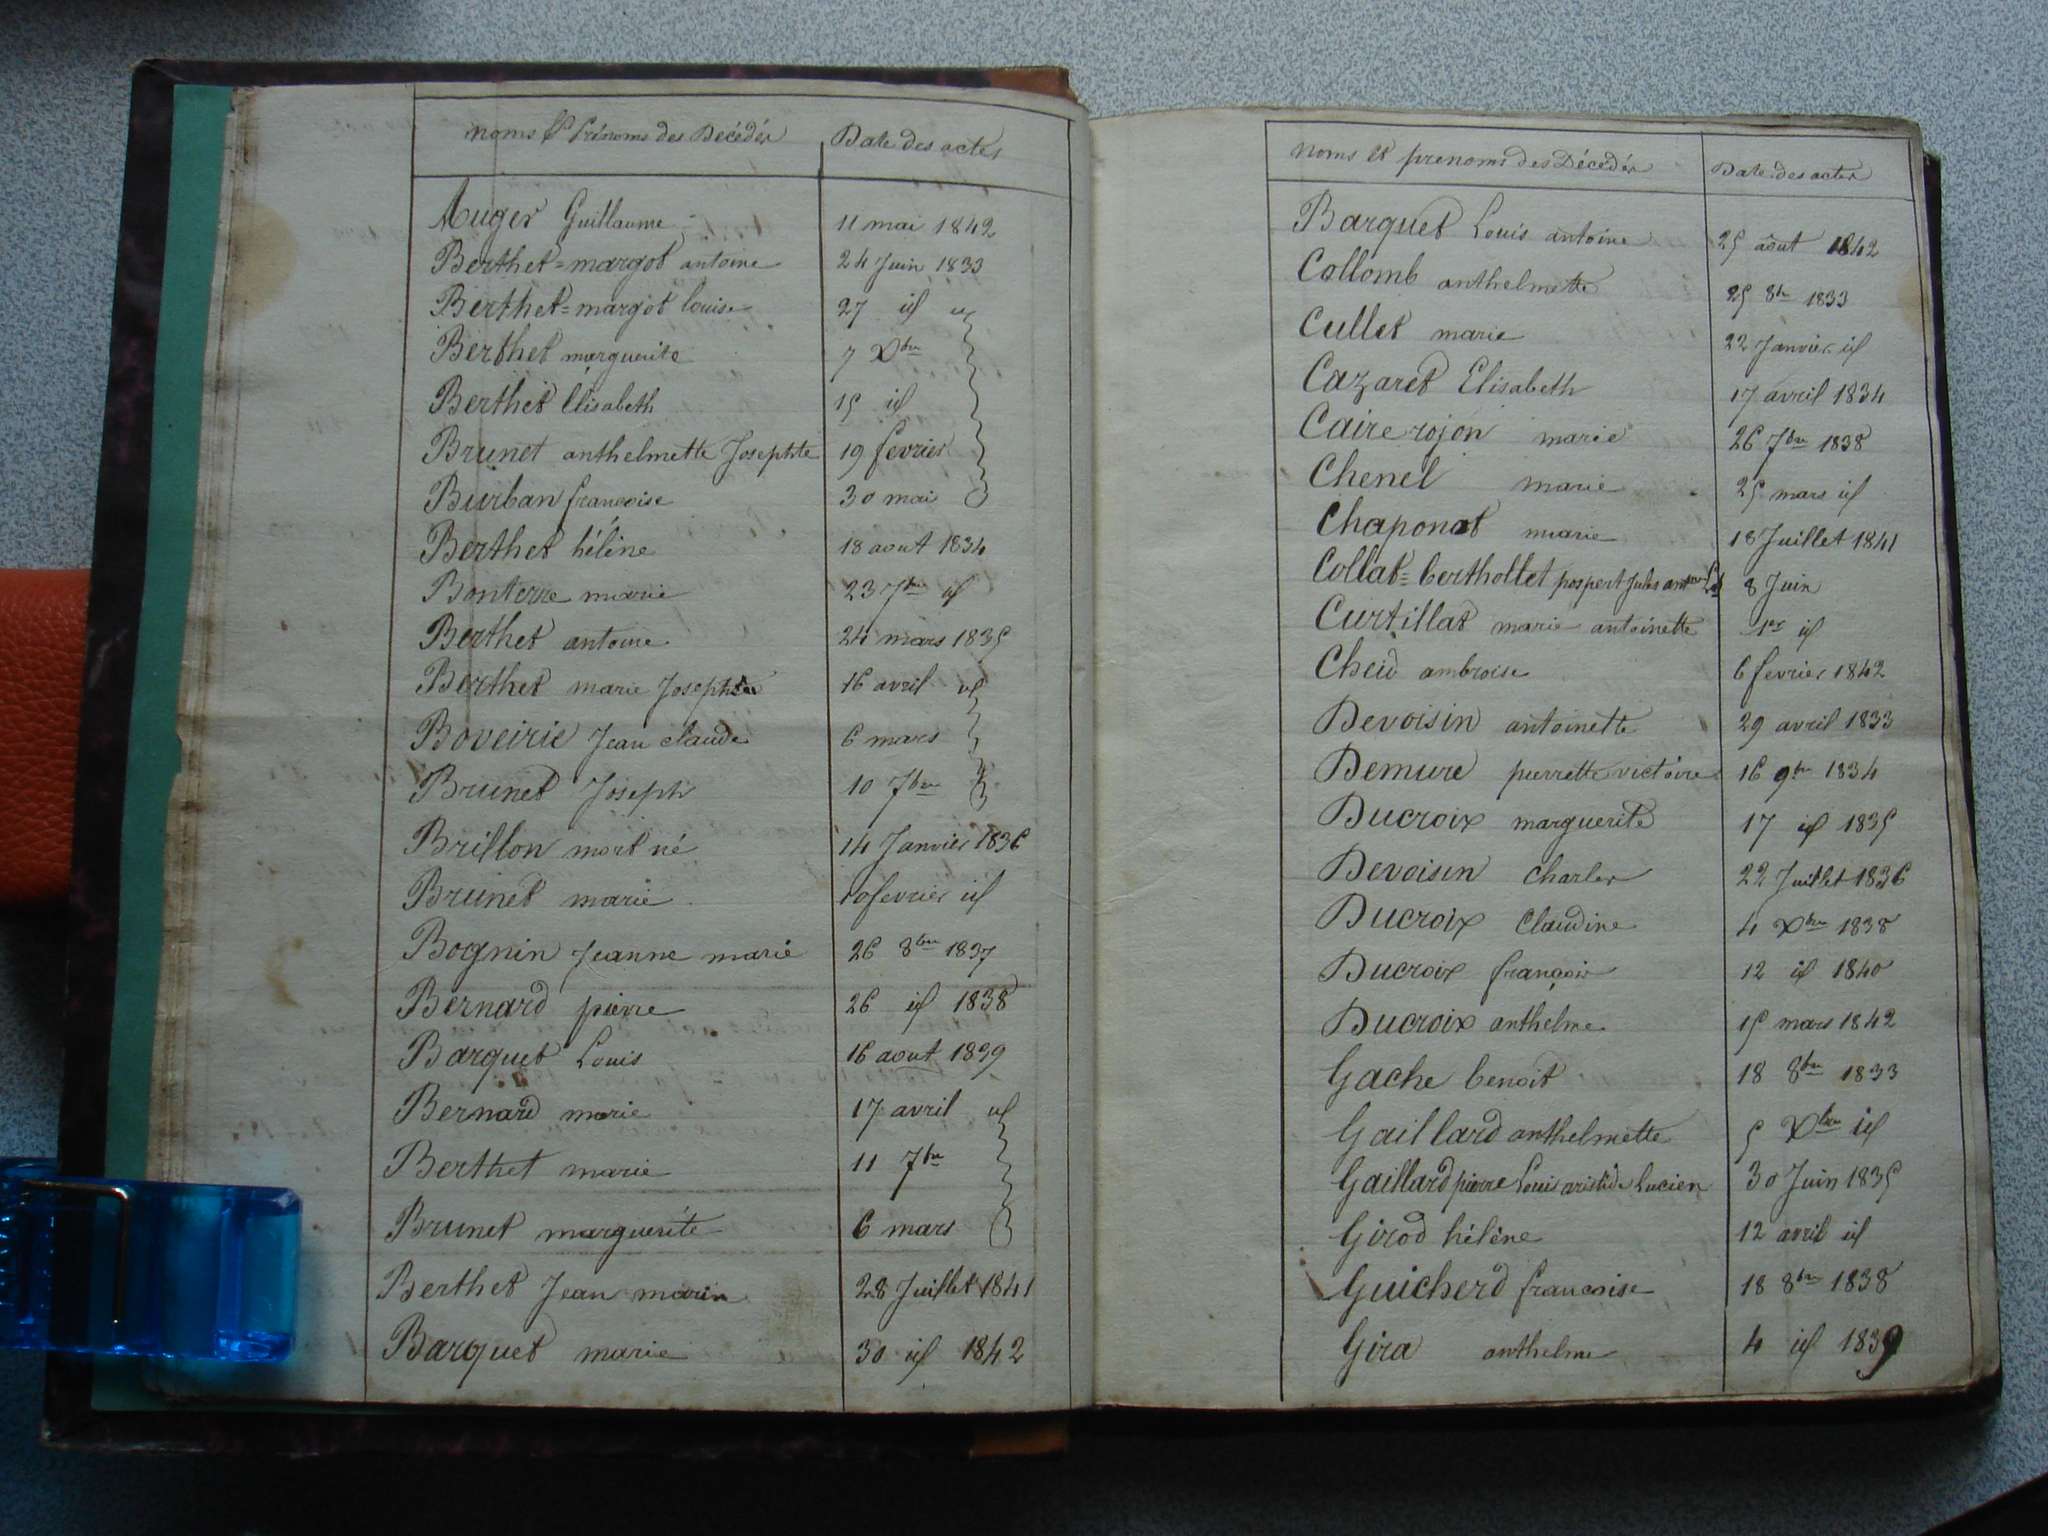 Noms & Prénoms des Décédés Date des actes
Auger Guillaume 11 mai 1842
Berthet=margot antoine 24 Juin 1833
Berthet=margot louise 27 id
Berthet marguerite 7 Xbre
Berthet Elisabeth 15 id
Brunet anthelmette Josephte 19 fevrier
Burban francoise 30 mai
Berthet hélène 18 aout 1834
Bonterre marie 23 7bre id
Berthet antoine 24 mars 1835
Berthet marie Josephte 16 avril id
Boveirie Jean claude 6 mars
Brunet Joseph 10 7bre
Brillon mort né 14 Janvier 1836
Brunet marie 10 fevrier id
Bognin Jeanne marie 26 8bre 1837
Bernard pierre 26 id 1838
Barquet Louis 16 aout 1839
Bernard marie 17 avril id
Berthet marie 11 7bre
Brunet marguerite 6 mars
Berthet Jean marin 28 Juillet 1841
Barquet marie 30 id 1842
Noms et prenoms des Décédés Date des actes
Barquet Louis antoine 25 août 1842
Collomb anthelmette 25 8bre 1833
Cullet marie 22 Janvier id
Cazaret Elisabeth 17 avril 1834
Caire rojon marie 26 7bre 1838
Chenel marie 25 mars id
Chaponot marie 18 Juillet 1841
Collat=berthollet pospert Jules 8 Juin
Curtillat marie antoinette 1er id
Cheid ambroise 6 fevrier 1842
Devoisin antoinette 29 avril 1833
Demure pierrette victoire 16 9bre 1834
Ducroix marguerite 17 id 1835
Devoisin Charles 22 Juillet 1836
Ducroix Claudine 4 Xbre 1838
Ducroix françois 12 id 1840
Ducroix anthelme 15 mars 1842
Gache benoit 18 8bre 1833
Gaillard anthelmette 5 Xbre id
Gaillard pierre Louis aristide Lucien 30 Juin 1835
Girod hélène 12 avril id
Guicherd francoise 18 8bre 1838
Gira anthelme 4 id 1839